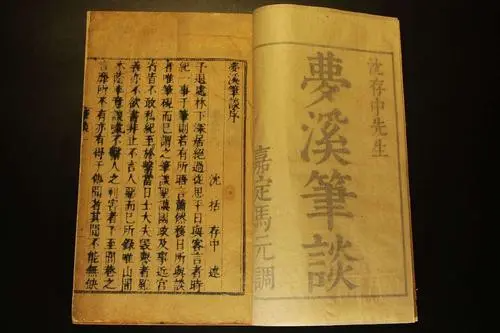 沈存中先生
夢溪筆談
嘉定馬元調
夢溪筆談序
沈括存中述
予退處林下深居絕過從思平日與客言者時
紀一事于筆則若有所晤言蕭然移日所與談
者唯筆硯而已謂之筆談聖謨國政及事近宮
省皆不敢私紀至於繫當日士大夫毀譽者雖
善亦不欲書非止不言人惡而已所錄唯山間
木蔭率意談噱不繫人之利害者下至閭巷之
言靡所不有亦有得于傳聞者其間不能無缺